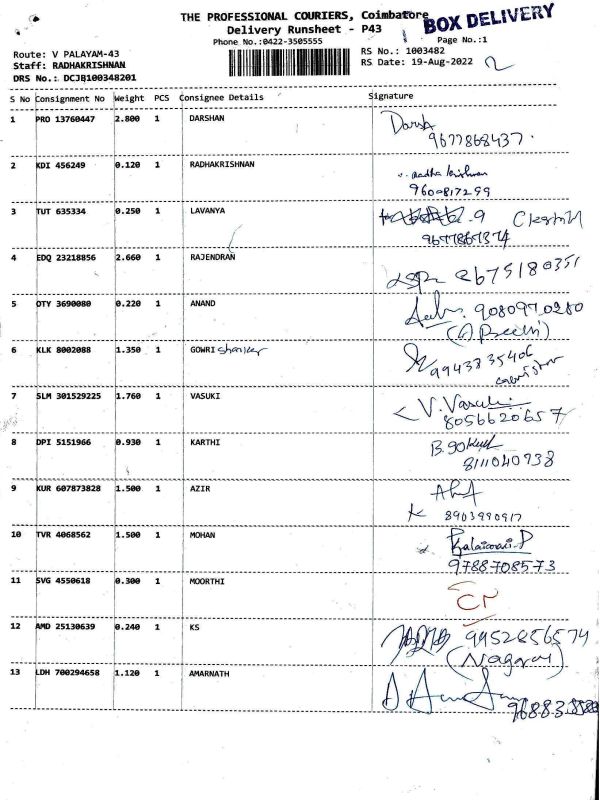 THE PROFESSIONAL COURIERS, Coimbatore
BOX DELIVERY
Delivery Runsheet - P43
Phone No.:0422-3505555
Page No.:1
Route: V PALAYAM-43
RS No.: 1003482
Staff: RADHAKRISHNAN
RS Date: 19-Aug-2022
2
DRS No.: DCJB100348201
S No Consignment No Weight PCS Consignee Details Signature
1 PRO 13760447 2.800 1 DARSHAN Darsh
9677868437.
2 KDI 456249 0.120 1 RADHAKRISHNAN v. radha krishnan
9600817299
3 TUT 635334 0.250 1 LAVANYA
9677867374
4 EDQ 23218856 2.660 1 RAJENDRAN 8675180351
5 OTY 3690080 0.220 1 ANAND 9080970280
6 KLK 8002088 1.350 1 GOWRI shanker
9943835406
7 SLM 301529225 1.760 1 VASUKI V. Vasuki
8056620657
8 DPI 5151966 0.930 1 KARTHI B. Gokul
8111040938
9 KUR 607873828 1.500 1 AZIR
8903990917
10 TVR 4068562 1.500 1 MOHAN Kalaivani.P
9788708573
11 SVG 4550618 0.300 1 MOORTHI
12 AMD 25130639 0.240 1 KS 9952856574
(Nagaraj)
13 LDH 700294658 1.120 1 AMARNATH